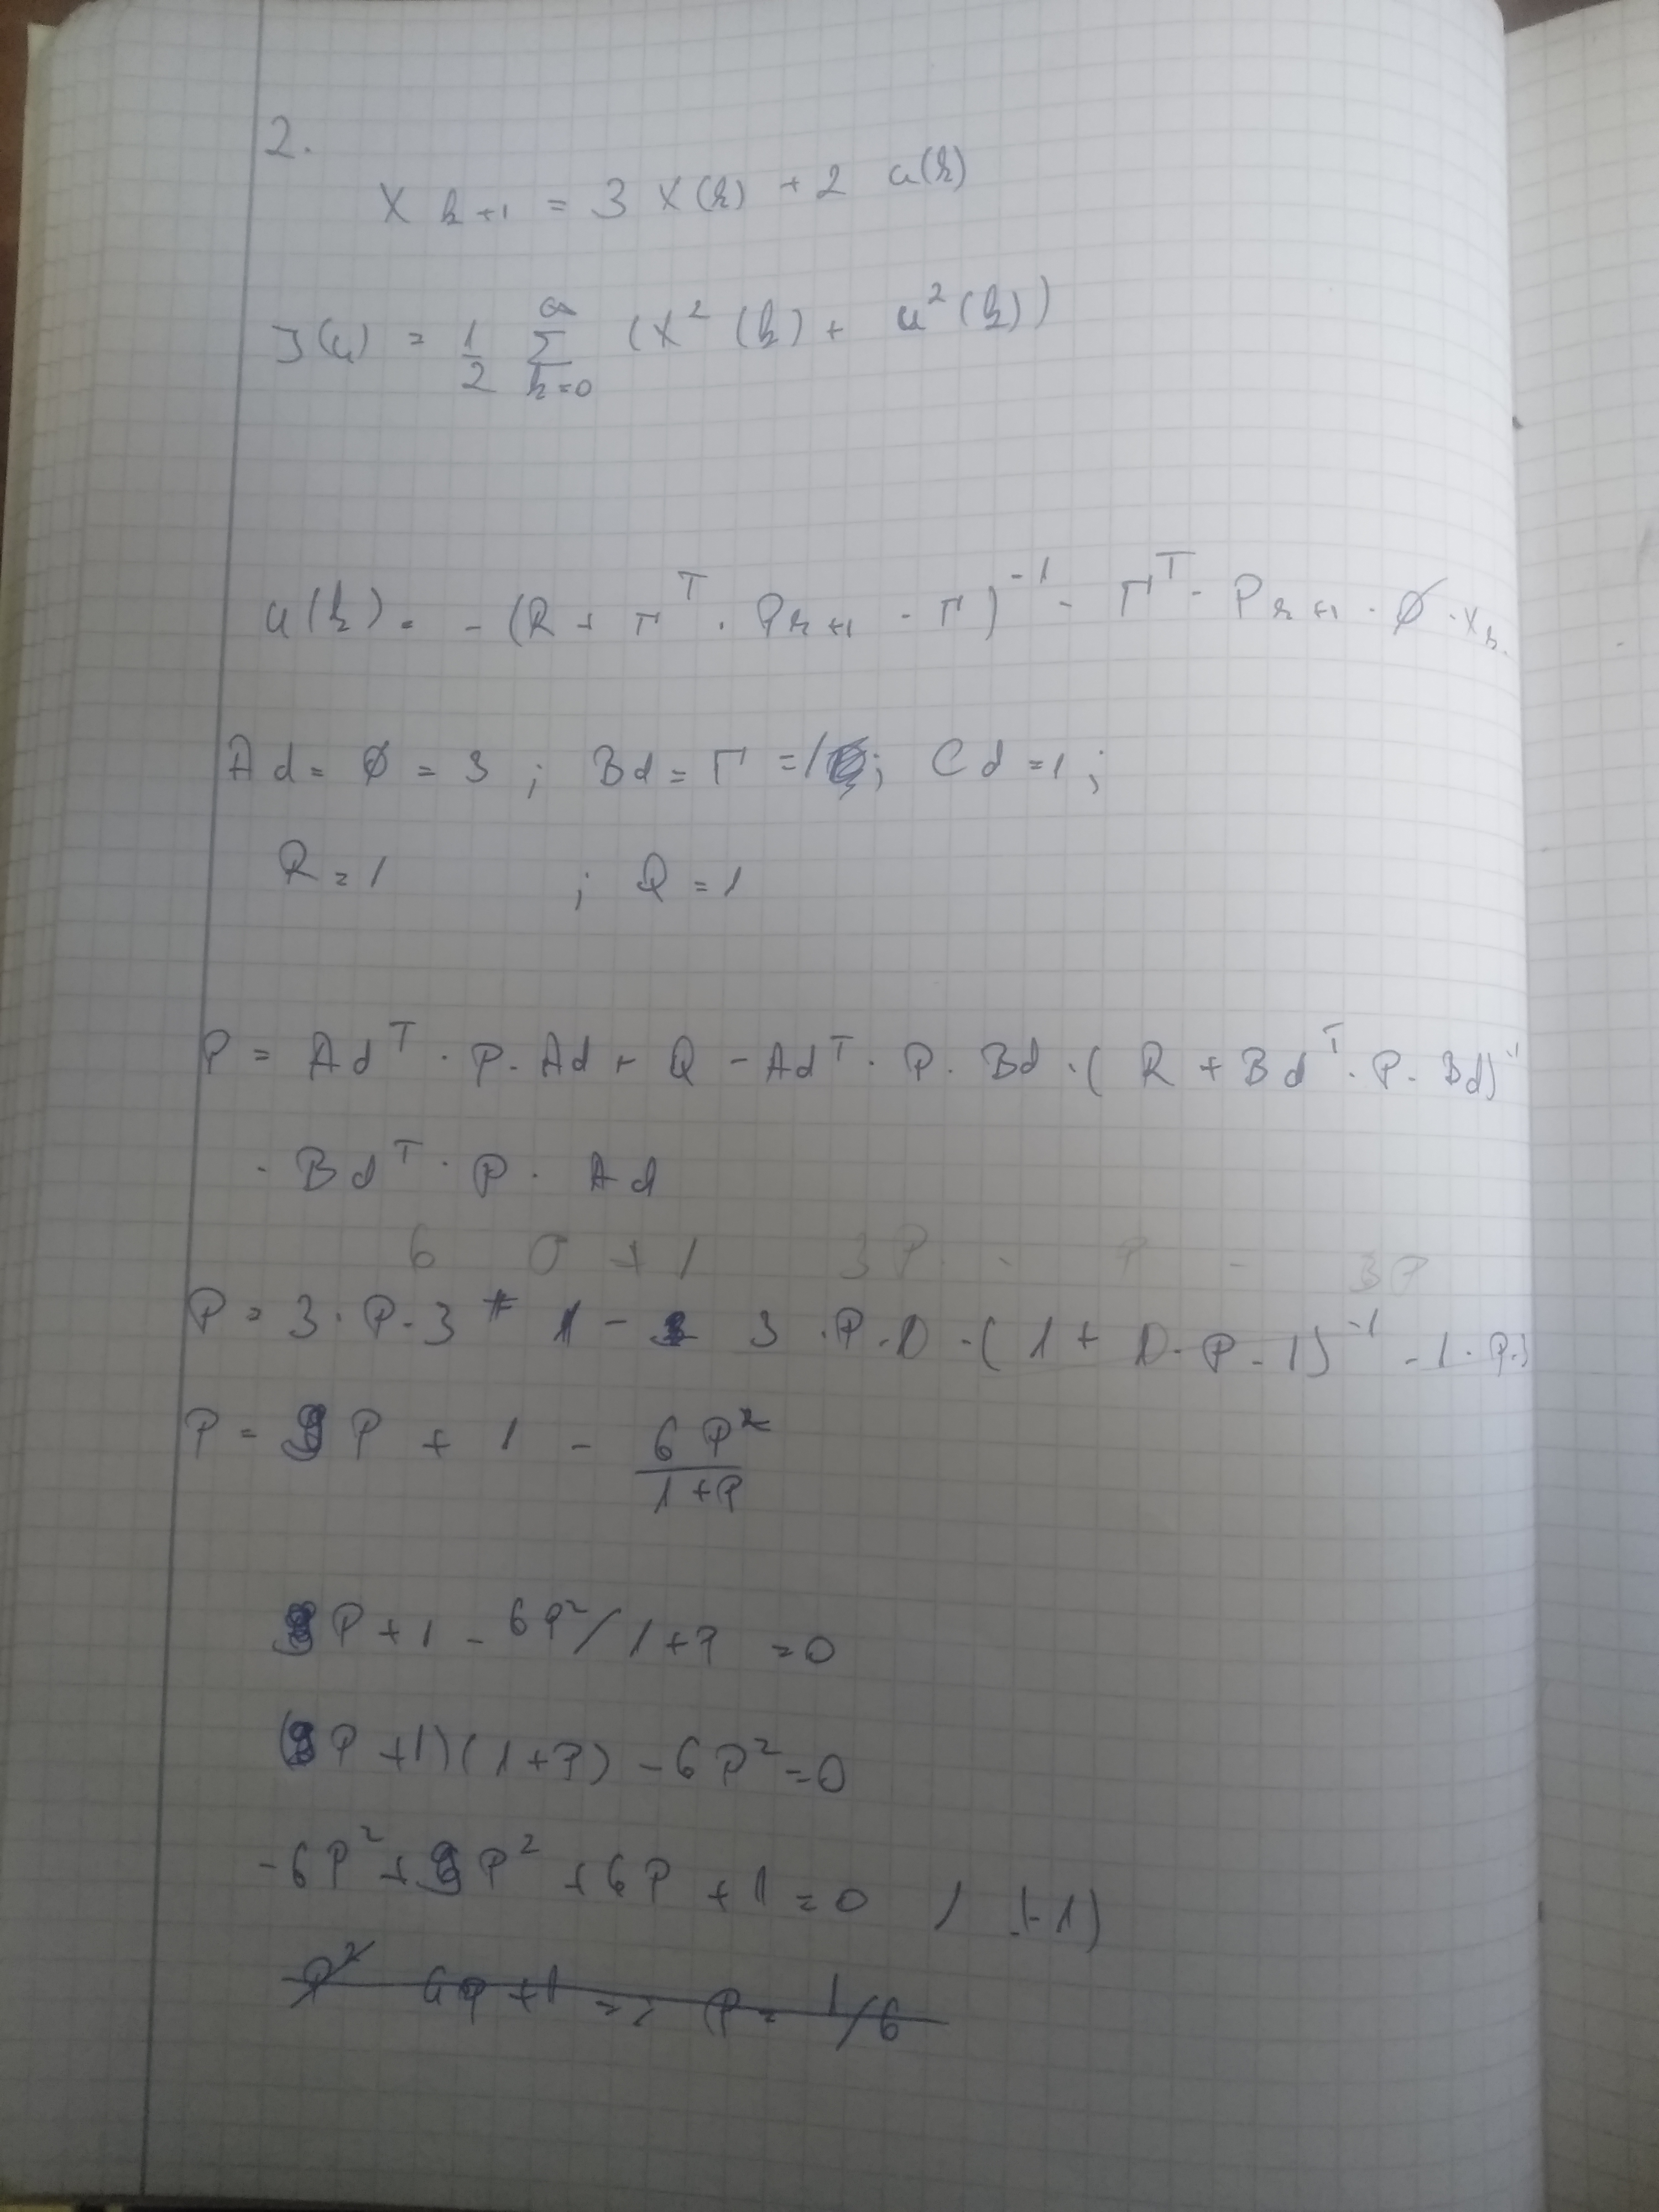 2.
X k+1 = 3 X(k) + 2 u(k)
J(u) = 1/2 ∑ k=0 ∞ (X² (k) + u² (k))
u(k) = -(R + Γ^T · P k+1 · Γ)^-1 · Γ^T · P k+1 · Ø · X k
Ad = Ø = 3 ; Bd = Γ = 1 ; Cd = 1 ;
R = 1 ; Q = 1
P = Ad^T · P · Ad + Q - Ad^T · P · Bd · ( R + Bd^T · P · Bd)^-1
· Bd^T · P · Ad
6 0 + 1 3P - P - 3P
P = 3 · P · 3 + 1 - 3 · P · 1 · ( 1 + 1 · P · 1)^-1 · 1 · P · 3
P = 9 P + 1 - 6 P² / 1 + P
8 P + 1 - 6P² / 1 + P = 0
(8 P + 1) ( 1 + P) - 6 P² = 0
-6 P² + 8 P² + 6 P + 1 = 0 / (-1)
P² 6P + 1 => P = 1/6